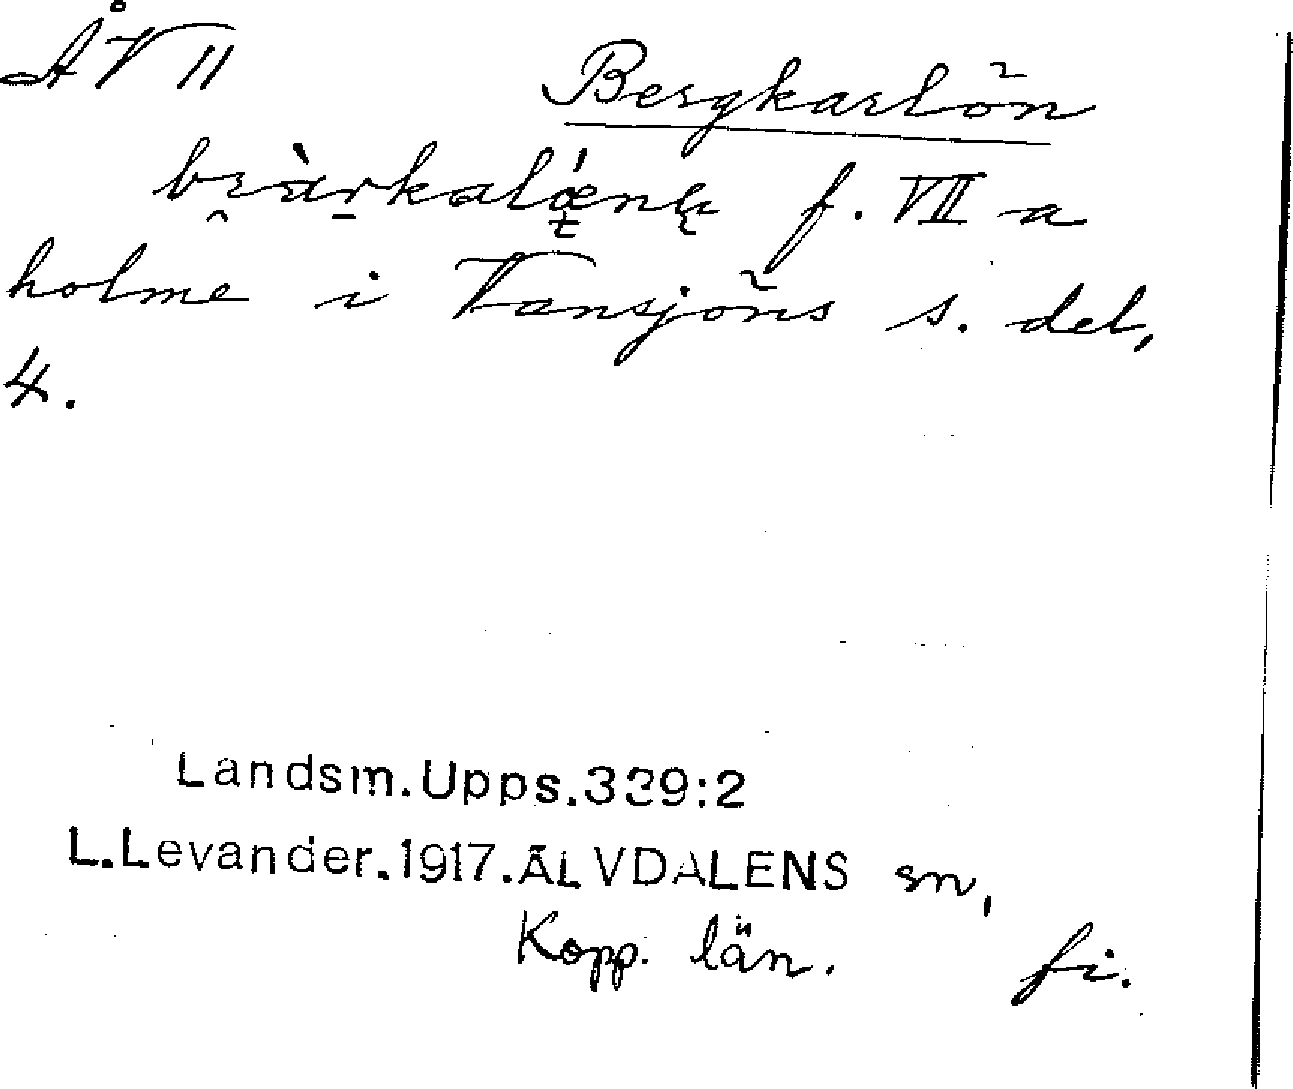 ÅV II
Bergkarlön
f. VII a
holme i Vansjöns s. del,
4.
Landsm.Upps.339:2
L.Levander.1917.ÄLVDALENS sn,
Kopp. län. fi.